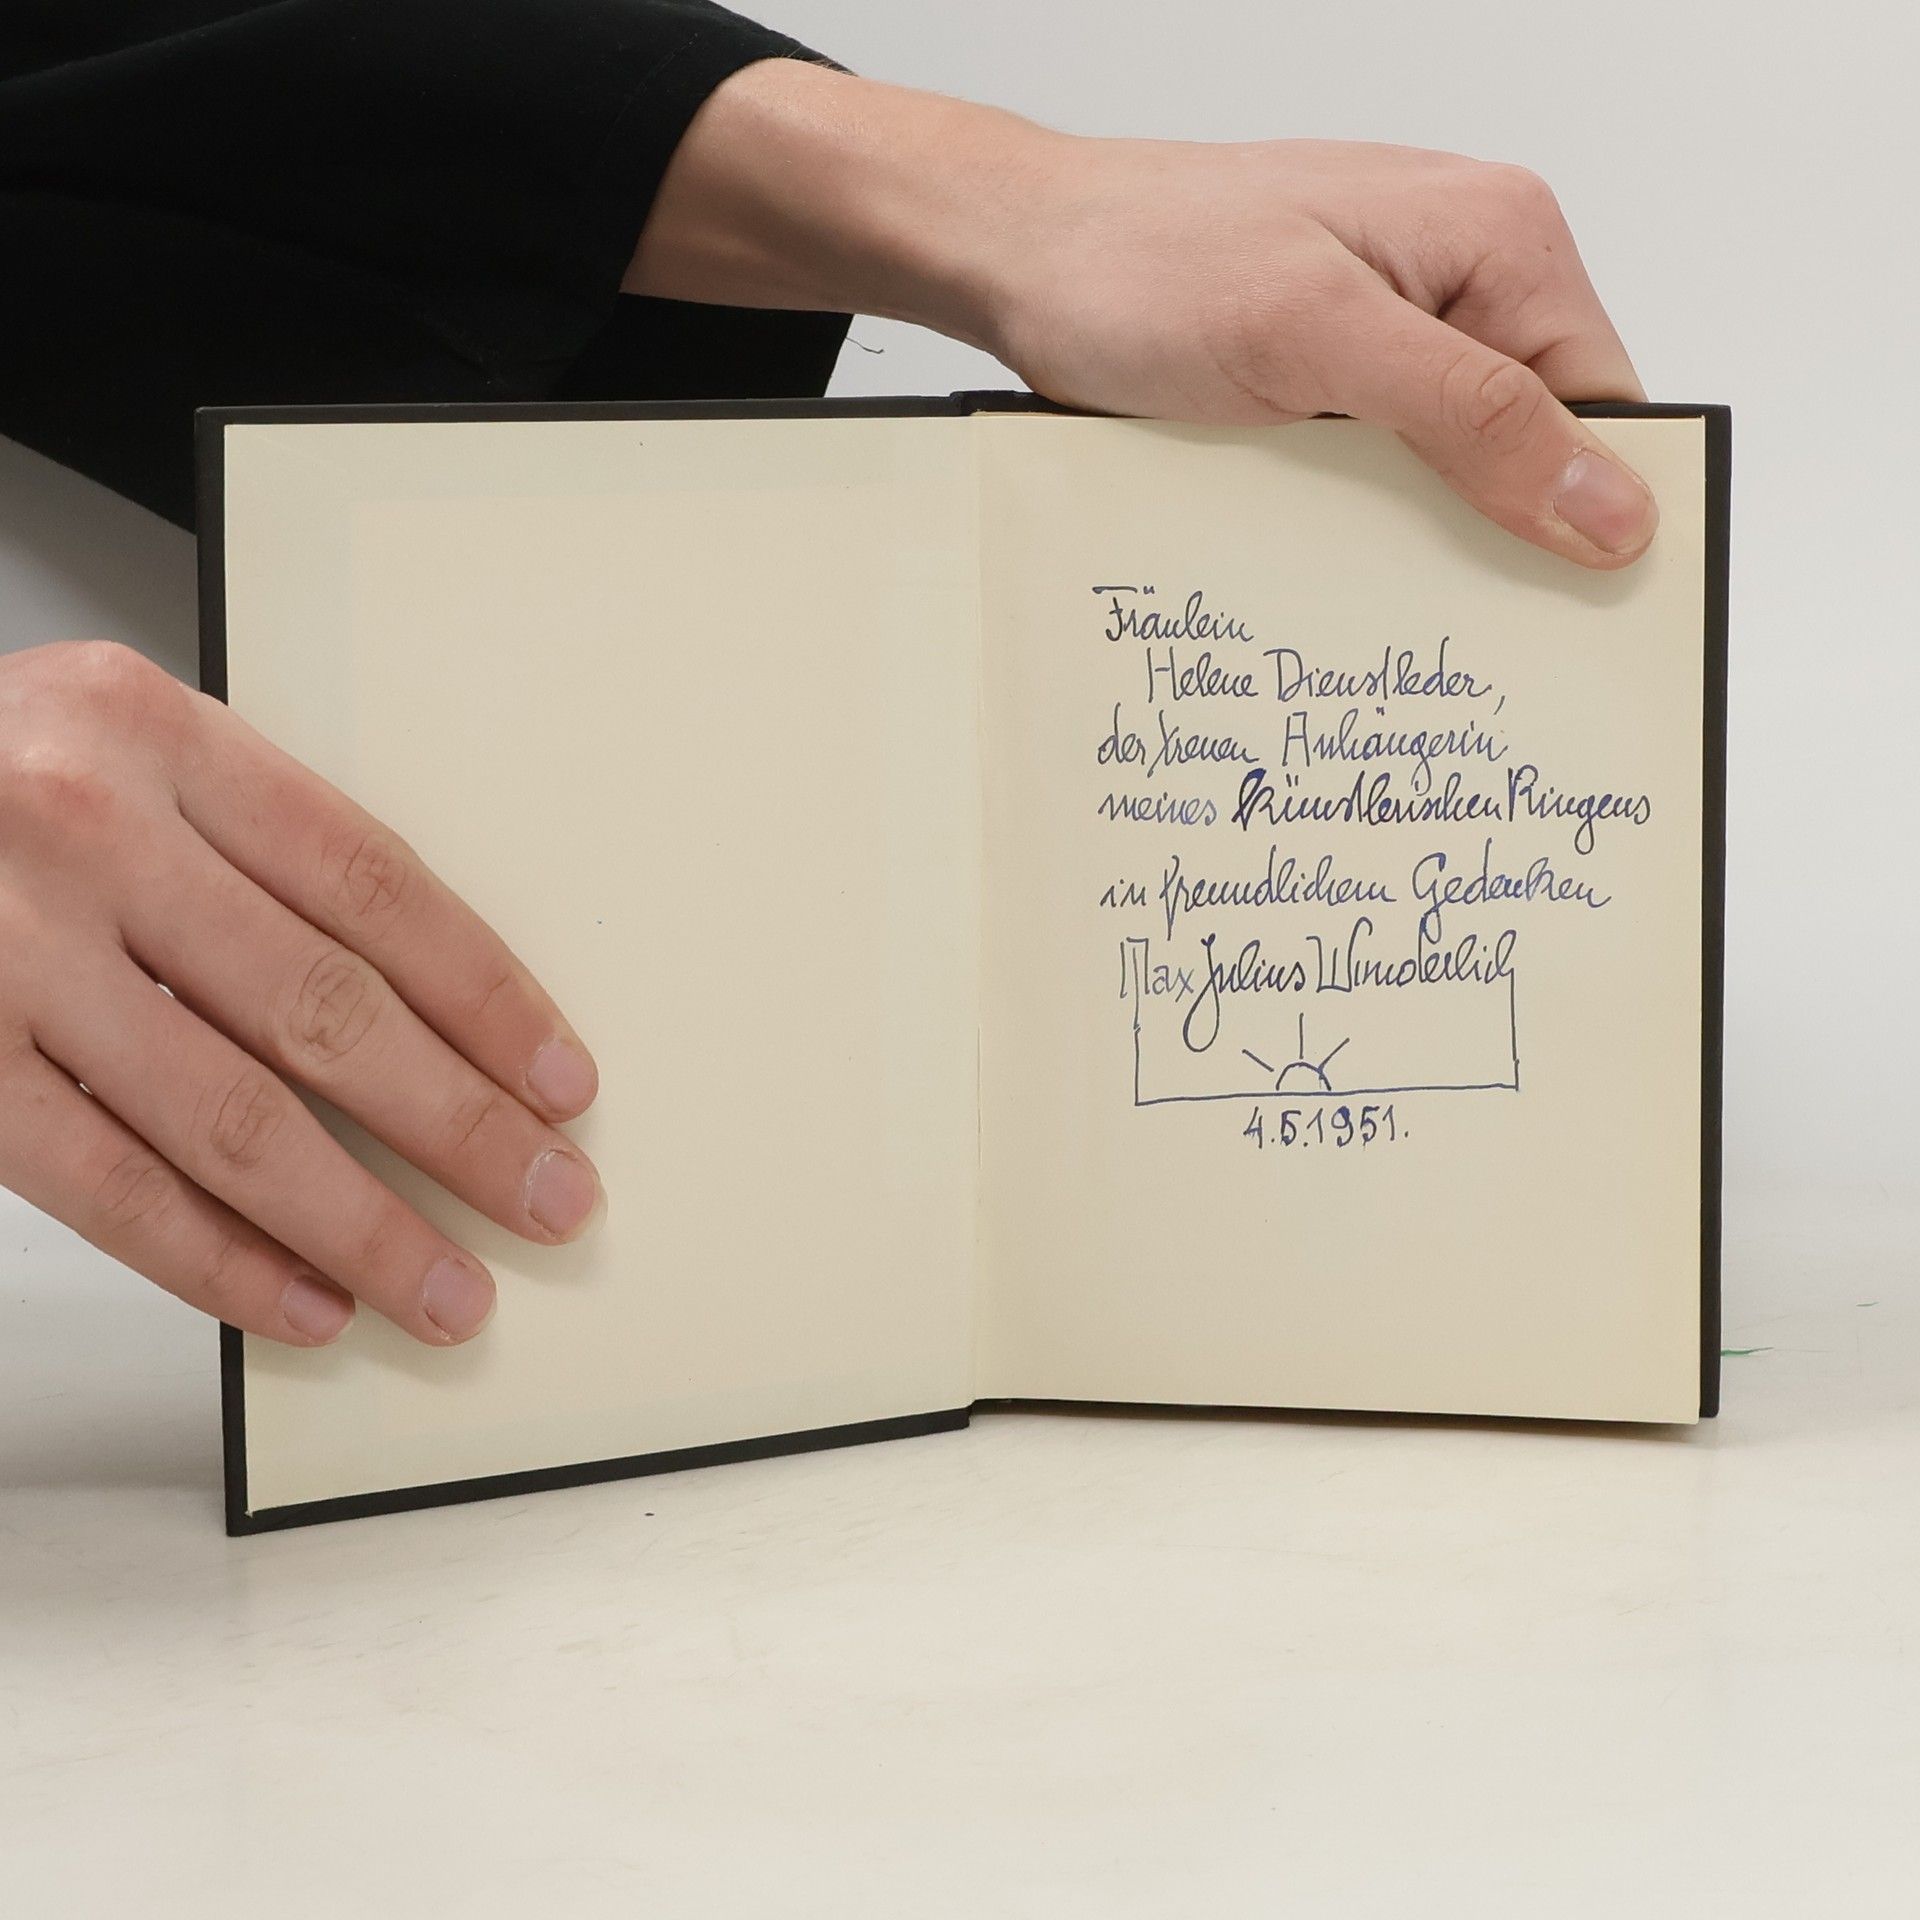 Fräulein
Helene Dienstleder,
der treuen Anhängerin
meines künstlerischen Ringens
in freundlichem Gedenken
Max Julius Wunderlich
4.5.1951.